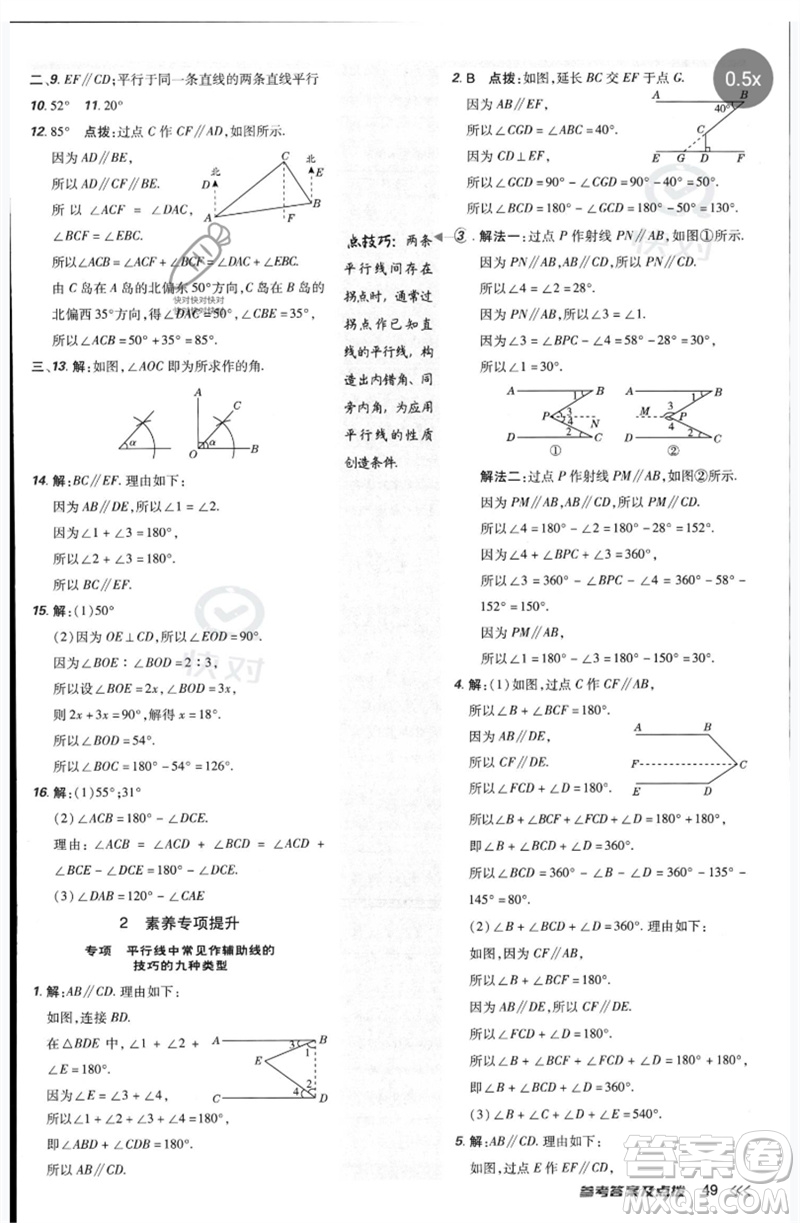 二、9. EF∥CD;平行于同一条直线的两条直线平行
10. 52°　11. 20°
12. 85°　点拨:过点 C 作 CF∥AD,如图所示.
因为 AD∥BE,
所以 AD∥CF∥BE.
所以 ∠ACF = ∠DAC,
∠BCF = ∠EBC.
所以∠ACF + ∠BCF = ∠DAC + ∠EBC.
由 C 岛在 A 岛的北偏东50°方向,C 岛在 B 岛的
北偏西35°方向,得∠DAC = 50°,∠CBE = 35°,
所以∠ACB = 50° + 35° = 85°.
北
D
A
C
F
北
E
B
快对快对快对
快对快对快对
三、13. 解:如图,∠AOC 即为所求作的角.
α
A
C
O
α
B
14. 解:BC∥EF. 理由如下:
因为 AB∥DE,所以∠1 = ∠2.
因为∠1 + ∠3 = 180°,
所以∠2 + ∠3 = 180°.
所以 BC∥EF.
15. 解:(1)50°
(2)因为 OE⊥CD,所以∠EOD = 90°.
因为∠BOE∶∠BOD = 2∶3,
所以设∠BOE = 2x,∠BOD = 3x,
则 2x + 3x = 90°,解得 x = 18°.
所以∠BOD = 54°.
所以∠BOC = 180° - 54° = 126°.
16. 解:(1)55°;31°
(2)∠ACB = 180° - ∠DCE.
理由:∠ACB = ∠ACD + ∠DCE +
∠BCE - ∠DCE = 180° - ∠DCE.
(3)∠DAB = 120° - ∠CAE
2　素养专项提升
专项　平行线中常见作辅助线的
技巧的九种类型
1. 解:AB∥CD. 理由如下:
如图,连接 BD.
在 △BDE 中,∠1 + ∠2 +
∠E = 180°.
因为∠E = ∠3 + ∠4,
所以∠1 + ∠2 + ∠3 + ∠4 = 180°,
即∠ABD + ∠CDB = 180°.
所以 AB∥CD.
A
3
B
1
E
2
4
C
D
点技巧:两条
平行线间存在
拐点时,通常过
拐点作已知直
线的平行线,构
造出内错角、同
旁内角,为应用
平行线的性质
创造条件.
2. B　点拨:如图,延长 BC 交 EF 于点 G.
因为 AB∥EF,
所以∠CGD = ∠ABC = 40°.
因为 CD⊥EF,
所以∠GCD = 90° - ∠CGD = 90° - 40° = 50°.
所以∠BCD = 180° - ∠GCD = 180° - 50° = 130°.
0.5x
B
40°
C
E
G
D
F
快对
3. 解法一:过点 P 作射线 PN∥AB,如图①所示.
因为 PN∥AB,AB∥CD,所以 PN∥CD.
所以∠4 = ∠2 = 28°.
因为 PN∥AB,所以∠3 = ∠1.
因为∠3 = ∠BPC - ∠4 = 58° - 28° = 30°,
所以∠1 = 30°.
A
1
B
P
3
4
N
D
2
C
①
A
1
B
M
3
4
P
D
2
C
②
解法二:过点 P 作射线 PM∥AB,如图②所示.
因为 PM∥AB,AB∥CD,所以 PM∥CD.
所以∠4 = 180° - ∠2 = 180° - 28° = 152°.
因为∠4 + ∠BPC + ∠3 = 360°,
所以∠3 = 360° - ∠BPC - ∠4 = 360° - 58° -
152° = 150°.
因为 PM∥AB,
所以∠1 = 180° - ∠3 = 180° - 150° = 30°.
4. 解:(1)如图,过点 C 作 CF∥AB,
所以∠B + ∠BCF = 180°.
因为 AB∥DE,
所以 CF∥DE.
所以∠FCD + ∠D = 180°.
所以∠B + ∠BCF + ∠FCD + ∠D = 180° + 180°,
即∠B + ∠BCD + ∠D = 360°.
所以∠BCD = 360° - ∠B - ∠D = 360° - 135° -
145° = 80°.
A
B
F
C
E
D
(2)∠B + ∠BCD + ∠D = 360°. 理由如下:
如图,过点 C 作 CF∥AB,
所以∠B + ∠BCF = 180°.
因为 AB∥DE,所以 CF∥DE.
所以∠FCD + ∠D = 180°.
所以∠B + ∠BCF + ∠FCD + ∠D = 180° + 180°,
即∠B + ∠BCD + ∠D = 360°.
(3)∠B + ∠C + ∠D + ∠E = 540°.
5. 解:AB∥CD. 理由如下:
如图,过点 E 作 EF∥AB,
快对
答案圈
参考答案及点拨　49
MXQE.COM